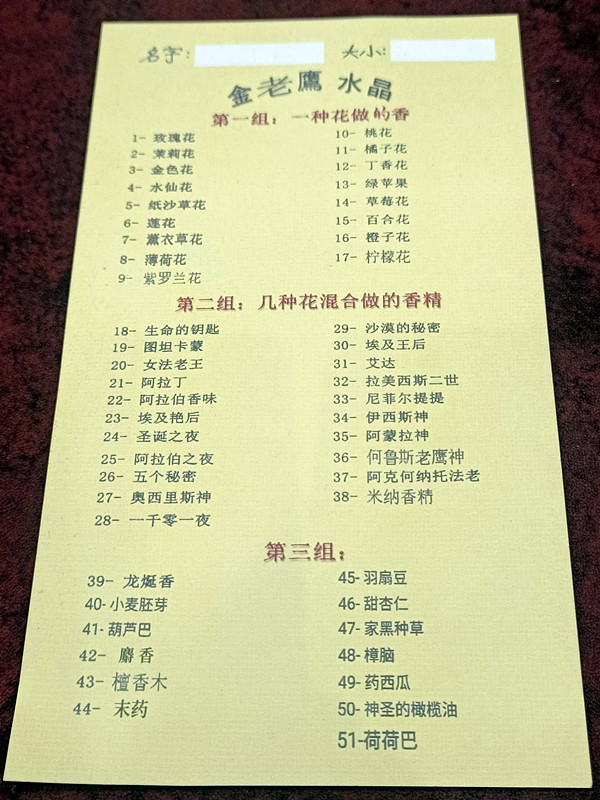 名字:
大小:
金老鹰 水晶
第一组：一种花做的香
1- 玫瑰花
2- 茉莉花
3- 金色花
4- 水仙花
5- 纸沙草花
6- 莲花
7- 薰衣草花
8- 薄荷花
9- 紫罗兰花
10- 桃花
11- 橘子花
12- 丁香花
13- 绿苹果
14- 草莓花
15- 百合花
16- 橙子花
17- 柠檬花
第二组：几种花混合做的香精
18- 生命的钥匙
19- 图坦卡蒙
20- 女法老王
21- 阿拉丁
22- 阿拉伯香味
23- 埃及艳后
24- 圣诞之夜
25- 阿拉伯之夜
26- 五个秘密
27- 奥西里斯神
28- 一千零一夜
29- 沙漠的秘密
30- 埃及王后
31- 艾达
32- 拉美西斯二世
33- 尼菲尔提提
34- 伊西斯神
35- 阿蒙拉神
36- 何鲁斯老鹰神
37- 阿克何纳托法老
38- 米纳香精
第三组：
39- 龙涎香
40- 小麦胚芽
41- 葫芦巴
42- 麝香
43- 檀香木
44- 末药
45- 羽扇豆
46- 甜杏仁
47- 家黑种草
48- 樟脑
49- 药西瓜
50- 神圣的橄榄油
51-荷荷巴